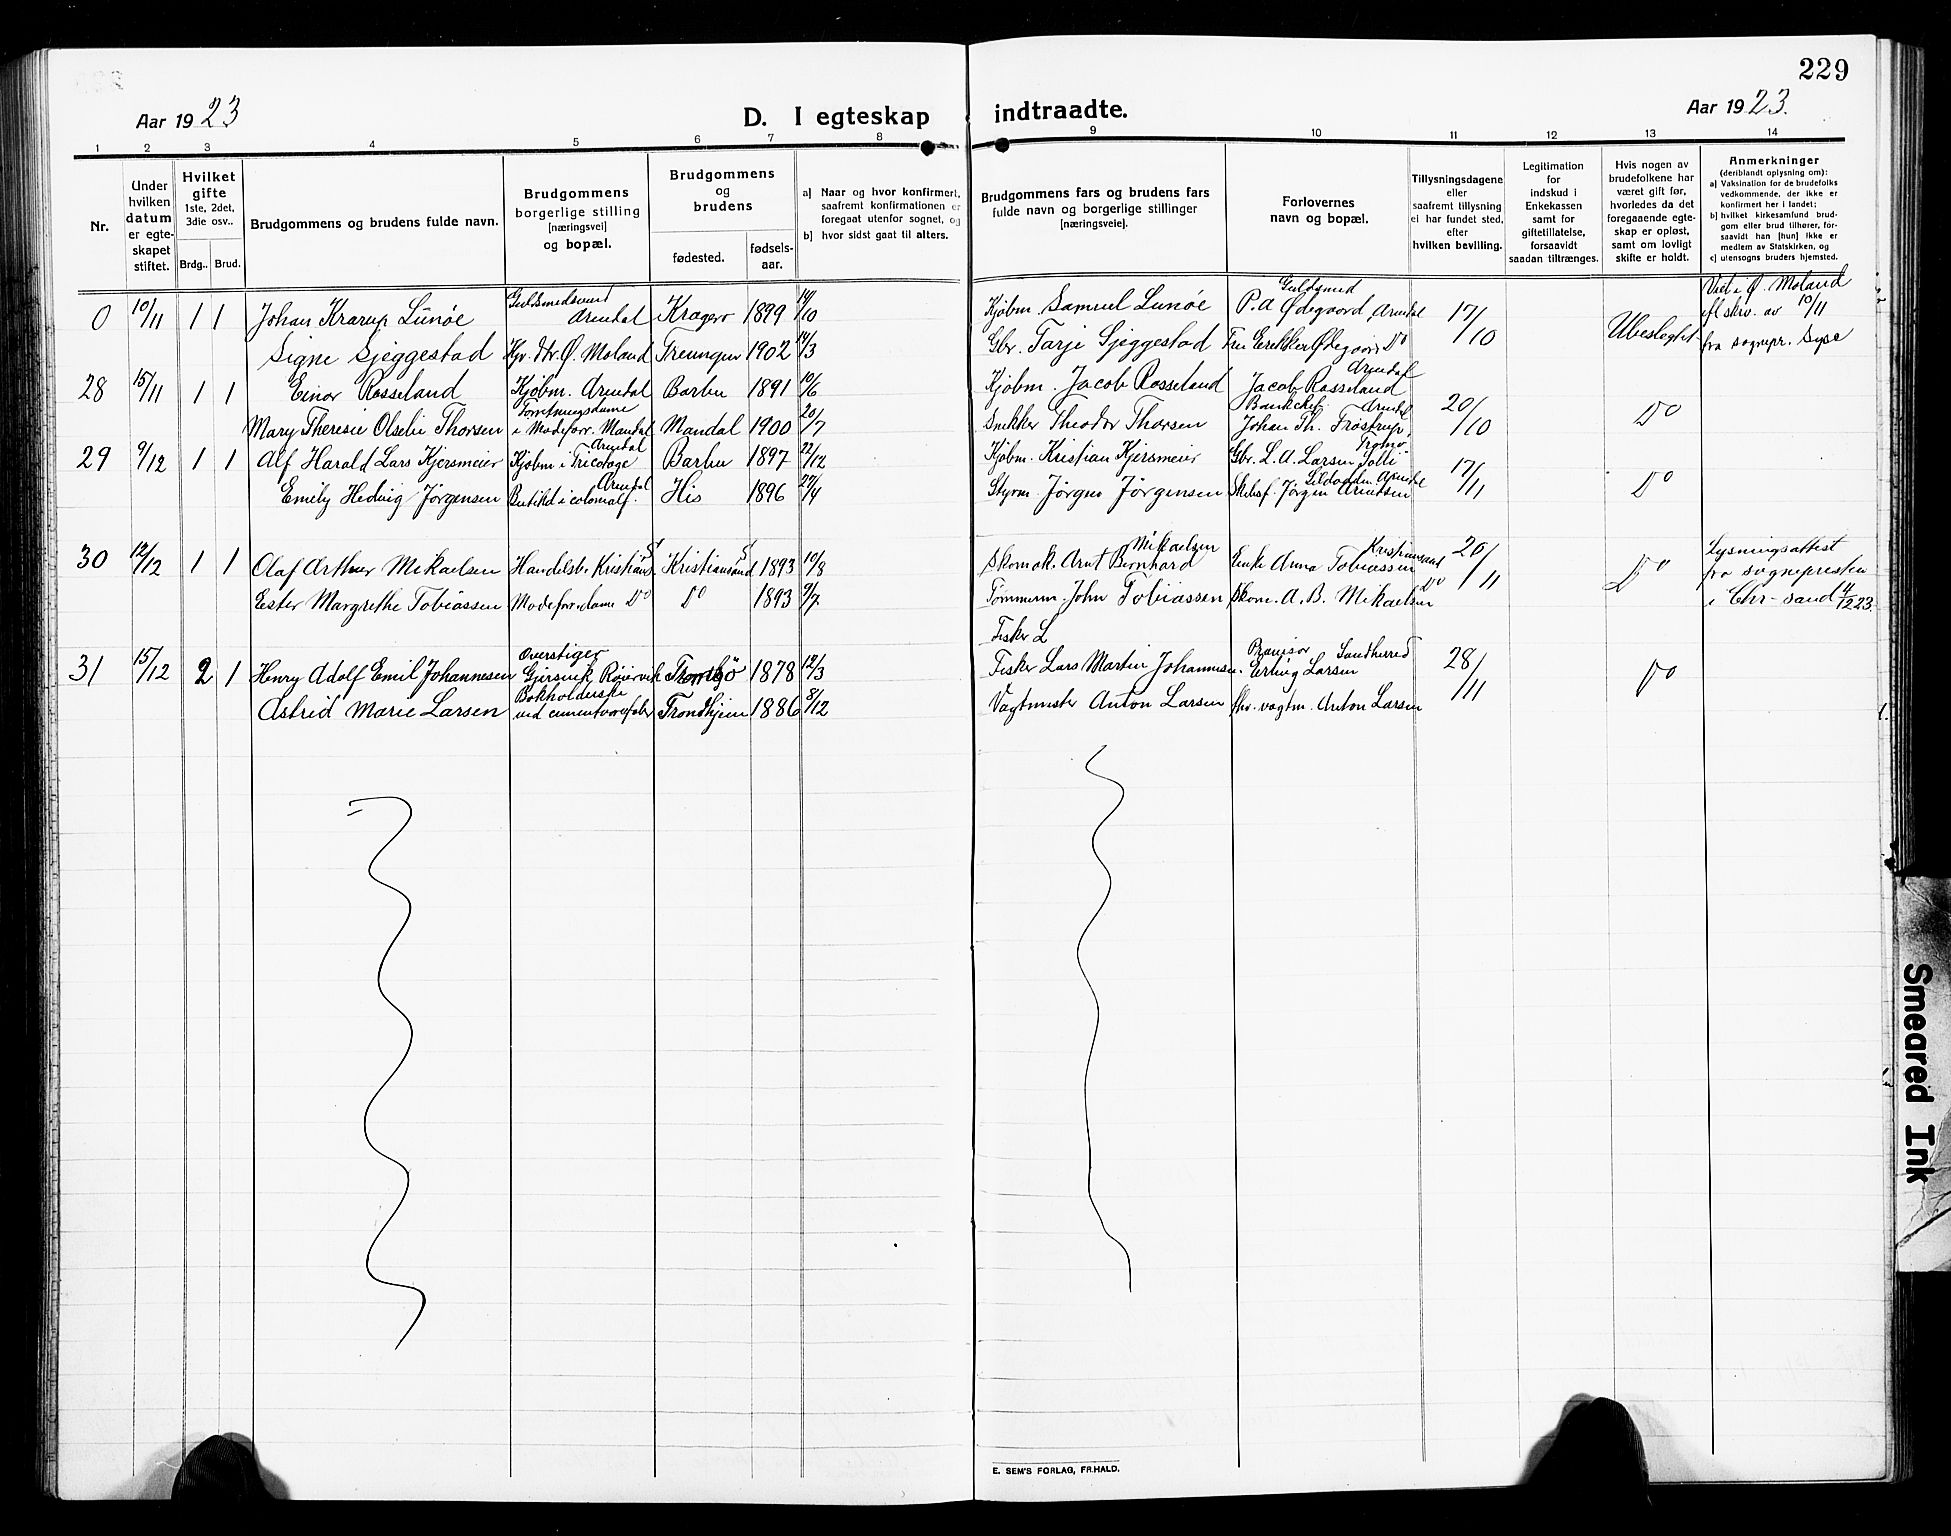 229
Aar 1923
D. I egteskap indtraadte.
Aar 1923.
1 2 3 4 5 6 7 8 9 10 11 12 13 14
Nr.
Under
hvilken
datum
er egte-
skapet
stiftet.
Hvilket
gifte
1ste, 2det,
3die osv..
Brdg..
Brud.
Brudgommens og brudens fulde navn.
Brudgommens
borgerlige stilling
[næringsvei]
og bopæl.
Brudgommens
og
brudens
fødested.
fødsels-
aar.
a] Naar og hvor konfirmert,
saafremt konfirmationen er
foregaat utenfor sognet, og
b] hvor sidst gaat til alters.
Brudgommens fars og brudens fars
fulde navn og borgerlige stillinger
[næringsveie].
Forlovernes
navn og bopæl.
Tillysningsdagene
eller
saafremt tillysning
ei har fundet sted,
efter
hvilken bevilling.
Legitimation
for
indskud i
Enkekassen
samt for
giftetillatelse,
forsaavidt
saadan tiltrænges.
Hvis nogen av
brudefolkene har
været gift før,
hvorledes da det
foregaaende egte-
skap er opløst,
samt om lovligt
skifte er holdt.
Anmerkninger
(deriblandt oplysning om):
a) Vaksination for de brudefolks
vedkommende, der ikke er
konfirmert her i landet;
b) hvilket kirkesamfund brud-
gom eller brud tilhører, for-
saavidt han [hun] ikke er
medlem av Statskirken, og
c) utensogns bruders hjemsted.
0 10/11 1 1 Johan Krarup Lunöe
Guldsmedsvend
Arendal
Kragerø 1899 14/10
Kjøbm. Samuel Lunöe
Guldsmed
P. A. Ødegaard, Arendal
17/10
Ubeslegtet.
Viet i Ø. Moland
efl skr. av 10/11
fra sognepr.
Signe Sjeggestad
Ø. Moland
Treungen 1902 14/3
Gbr. Tarje Sjeggestad
Ødegaard Do
28 15/11 1 1 Einar Rosseland
Kjøbm. Arendal
Barbu 1891 10/6
Kjøbm. Jacob Rosseland
Arendal
Jacob Rosseland
20/10
Do
Mary Theresie Olselie Thorsen
Forretningsdame
i Modeforr. Mandal
Mandal 1900 20/7
Snekker Theodor Thorsen
Bankchef. Arendal
Johan Th. Frøstrup,
29 9/12 1 1 Alf Harald Lars Kjersmeier
Arendal
Kjøbm i Tricotage
Barbu 1897 22/12
Kjøbm. Kristian Kjersmeier
Tromø
Gbr. L. A. Larsen
17/11
Do
Emily Hedvig Jörgensen
Arendal
His 1896 27/4
Styrm. Jørgen Jörgensen
Arendal
Jørgen Arentsen
30 12/12 1 1 Olaf Arthur Mikaelsen
Handelsb. Kristians S
Kristiansand S 1893 10/8
Mikaelsen
Skomak. Arnt Bernhard
Kristiansand
Enke Anna Tobiassen
26/11
Do
Lysningsattest
fra sognepresten
i Chr-sand 4/12 23.
Ester Margrethe Tobiassen
Modeforr.dame Do
Do 1893 9/7
Tømmerm. John Tobiassen
Do
Skom. A. B. Mikaelsen
Fisker L
31 15/12 2 1 Henry Adolf Emil Johannesen
Overstiger
Gjersvik, Røirvik
Tromsø 1878 12/3
Fisker Lars Martin Johannesen.
Provisor Sandherred
Erling Larsen
28/11
Do
Astrid Marie Larsen
Bokholderske
ved cementvarefabr
Trondhjem 1886 8/12
Vagtmester Anton Larsen
fhv. vagtm. Anton Larsen
E. SEM'S FORLAG, FR.HALD.
Smeared Ink